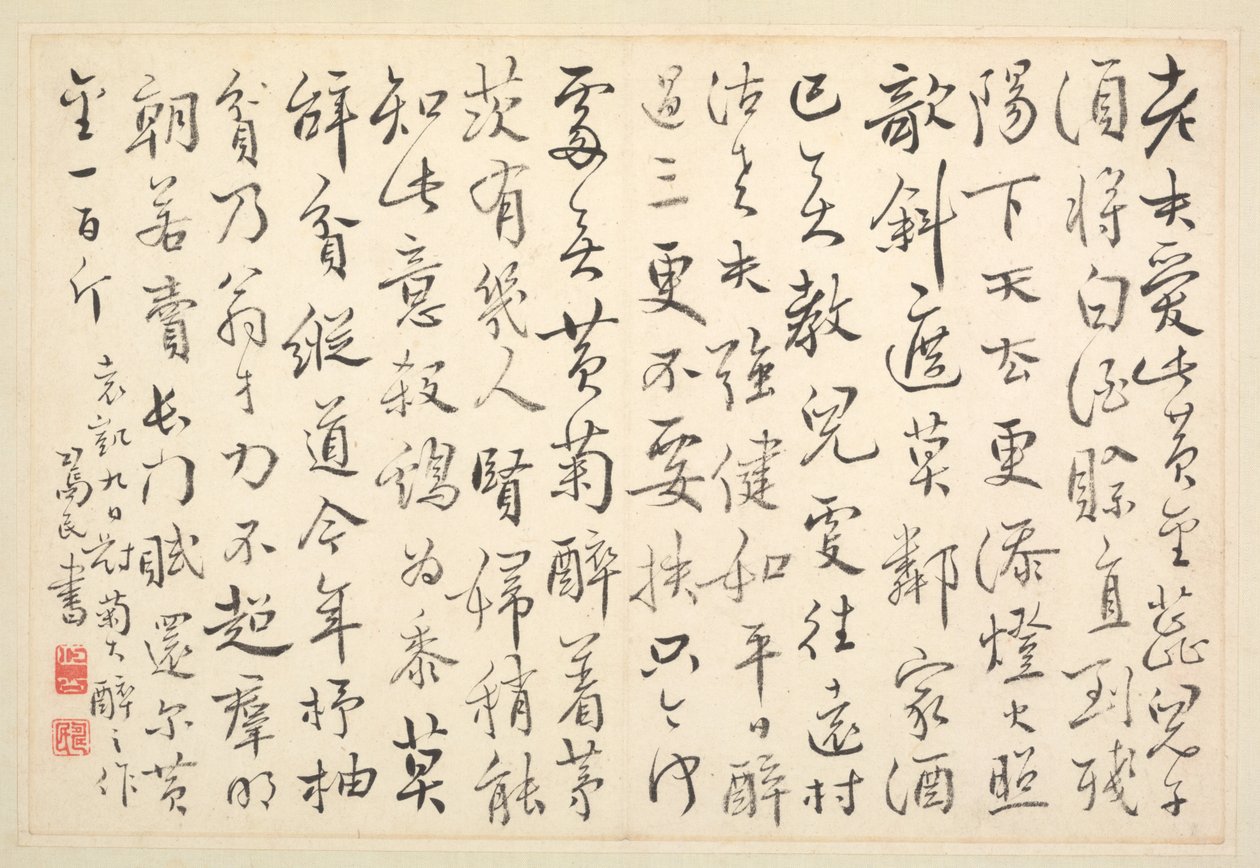 老夫愛此黃金蕊兒子
須將白酒賒直到殘
陽下天去更添燈火照
欹斜遮莫鄰家酒
已無教兒往遠村
沽老夫強健和平日醉
過三更不要扶只今何
處無黃菊醉着茅
茨有幾人賢婦稍能
知此意殺鷄為黍莫
辭貧縱道今年杼柚
貧乃翁才力不超羣明
朝若賣長門賦還尔黃
金一百斤
袁凱九日對菊大醉之作
民書